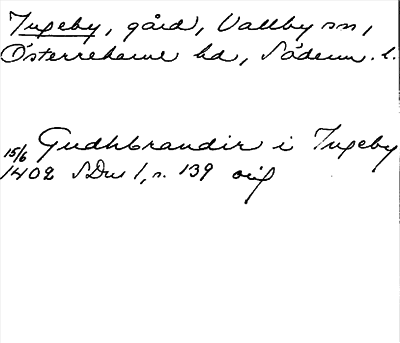 Ingeby, gård, Vallby sn,
Österrekarne hd, Söderm. l.
15/6 Gudhbrandir i Ingeby
1402 SDns 1, s. 139 orig